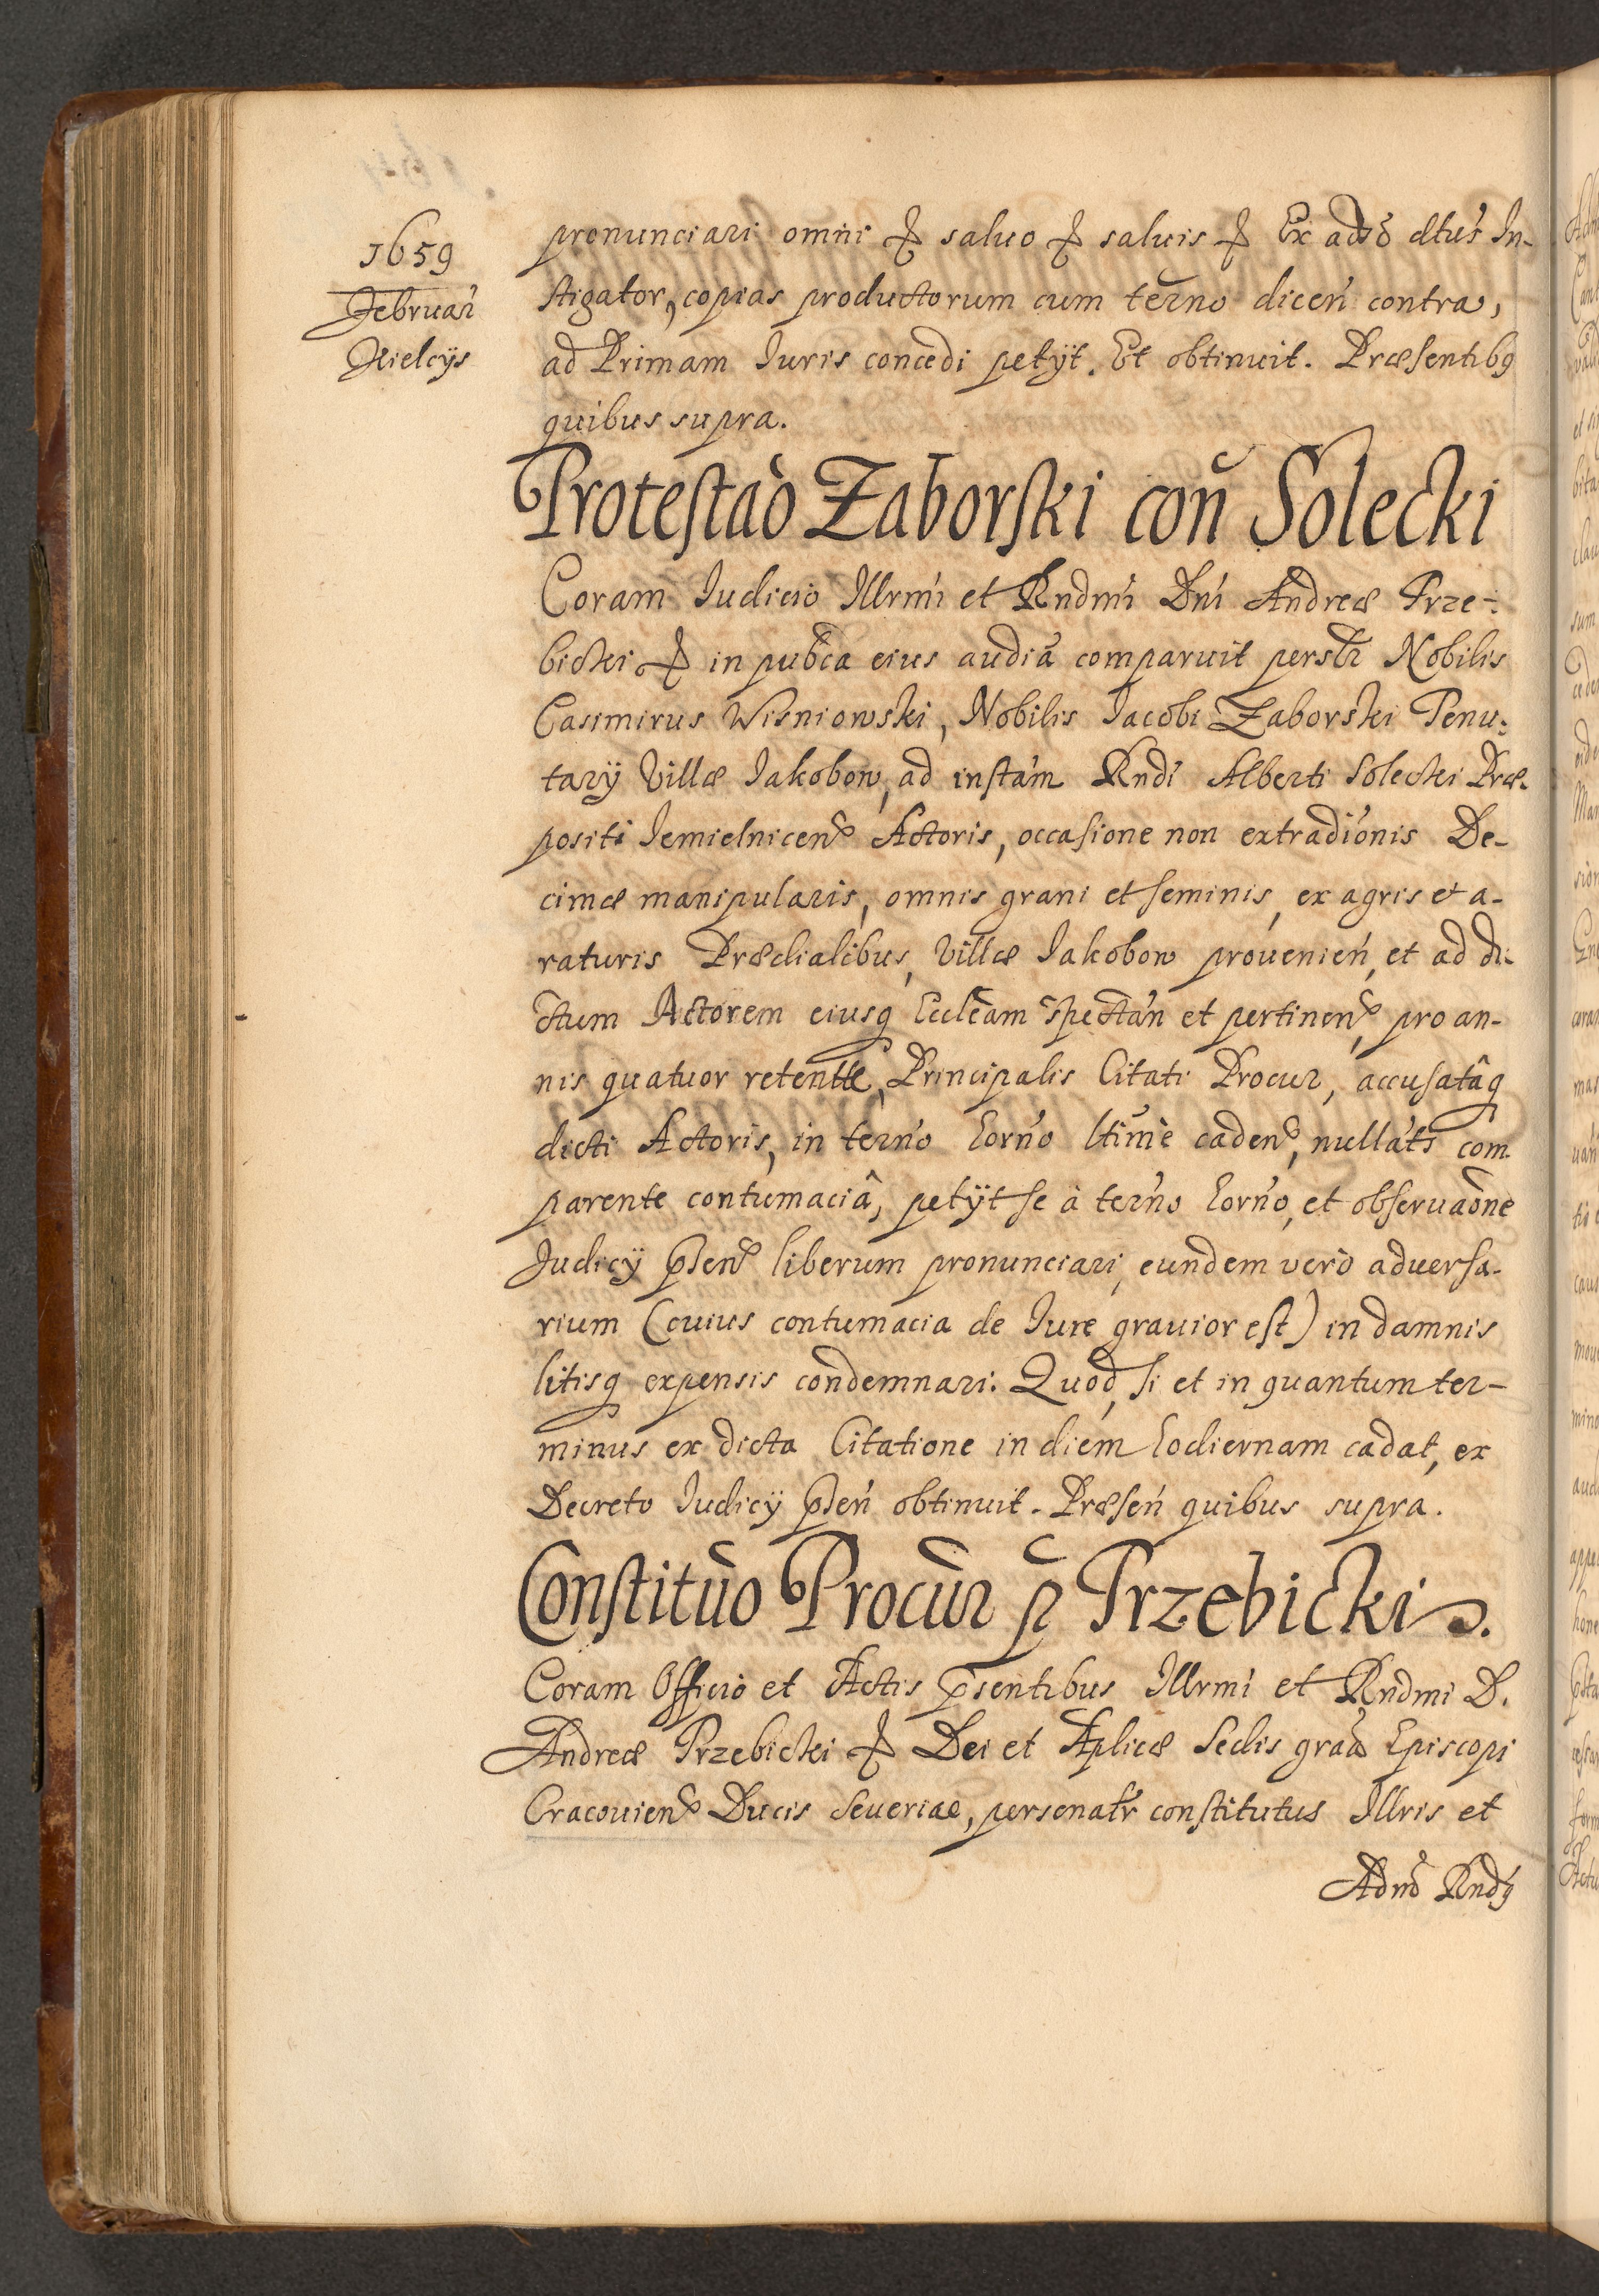 1659
Februar̃
Kielcÿs
pronunciari omni & saluo & saluis & Ex adũo dtus In-
stigator, copias productorum cum ter̃no diceñ contra,
ad Primam Iuris concedi petÿt. Et obtinuit. Præsentibꝫ
quibus supra.
Protestaõ Zaborski coñ Solecki
Coram Iudicio Illrmi et Rndmi Dni Andreæ Trze-
bicki & in pub̃ca eius audiã comparuit persl̃r Nobilis
Casimirus Wisniowski, Nobilis Iacobi Zaborski Tenu-
tarÿ Villæ Iakobow, ad instam Rndi Alberti Solecki Præ-
positi Iemielniceñ Actoris, occasione non extradionis De-
cimæ manipularis, omnis grani et seminis, ex agris et a-
raturis Prædialibus, Villæ Iakobow prouenieñ, et ad di-
ctum Actorem eiusq́ Eccleam spectañ et pertineñ, pro an-
nis quatuor retentæ, Principalis Citati Procur, accusatâq́
dicti Actoris, in ter̃no hor̃no ltime cadeñ, nullats com
parente contumaciâ, petÿt se à ter̃no hor̃no, et obseruaõne
Iudicÿ p̃señ liberum pronunciari, eundem verò aduersa-
rium (cuius contumacia de Iure grauior est) in damnis
litisq́ expensis condemnari. Quod, si et in quantum ter-
minus ex dicta Citatione in diem hodiernam cadat, ex
Decreto Iudicÿ p̃señ obtinuit. Præseñ quibus supra.
Constituõ Procur̃ p̃ Trzebicki.
Coram Officio et Actis p̃sentibus Illrmi et Rndmi D.
Andreæ Trzebicki & Dei et Aplicæ Sedis graã Episcopi
Cracouieñ Ducis Seueriae, personatr̃ constitutus Illris et
Adm̃ Rndꝫ